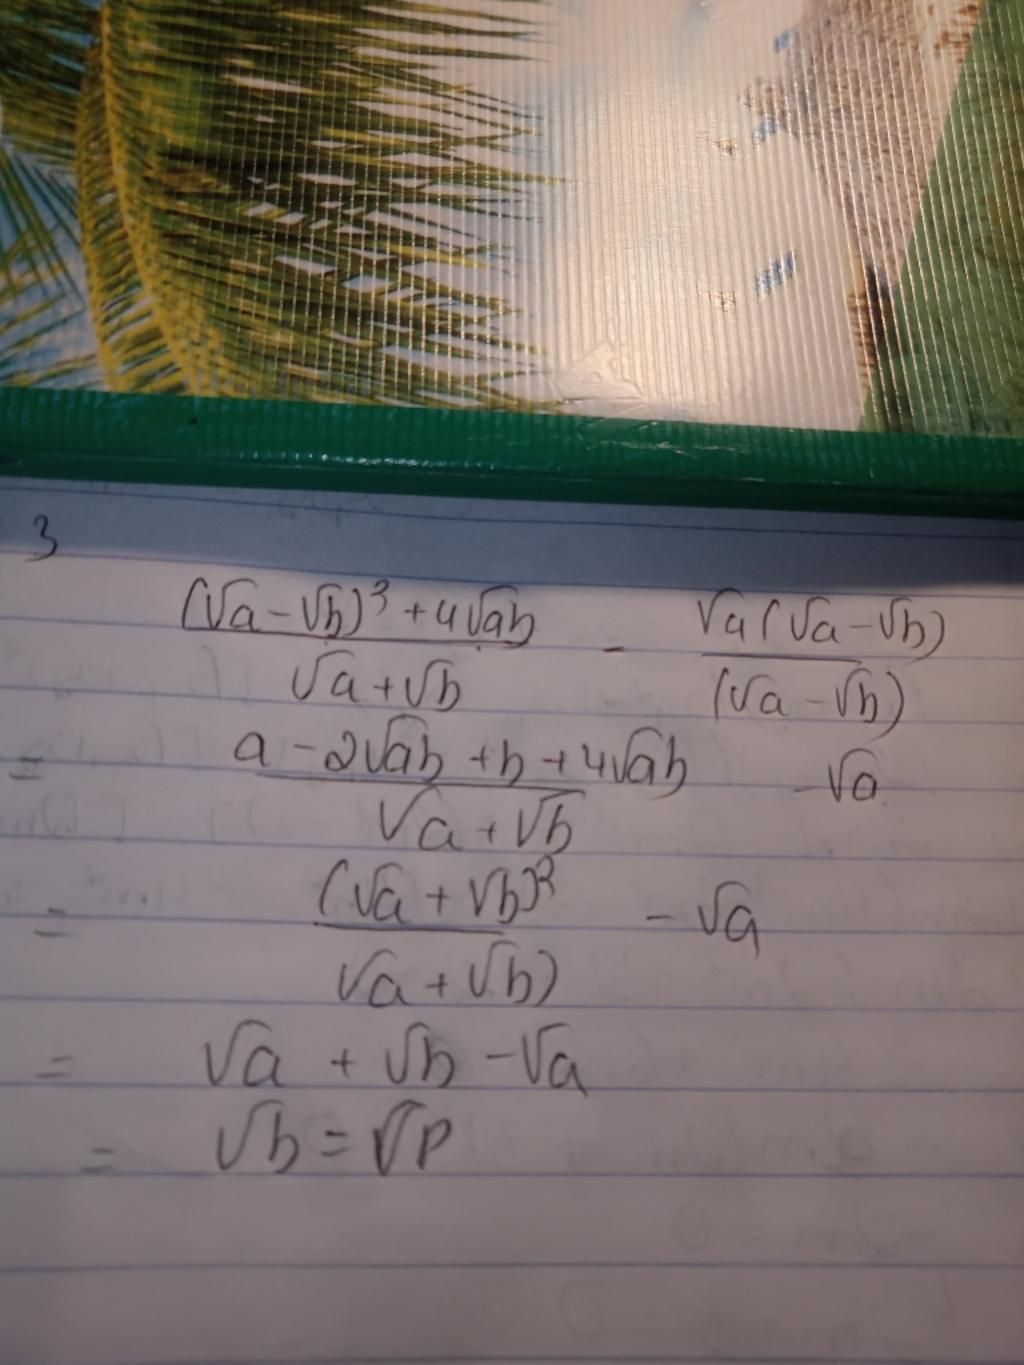 3
(√a - √b)³ + 4√ab / √a + √b - √a(√a - √b) / (√a - √b)
= a - 2√ab + b + 4√ab / √a + √b - √a
= (√a + √b)² / √a + √b) - √a
= √a + √b - √a
= √b = √P